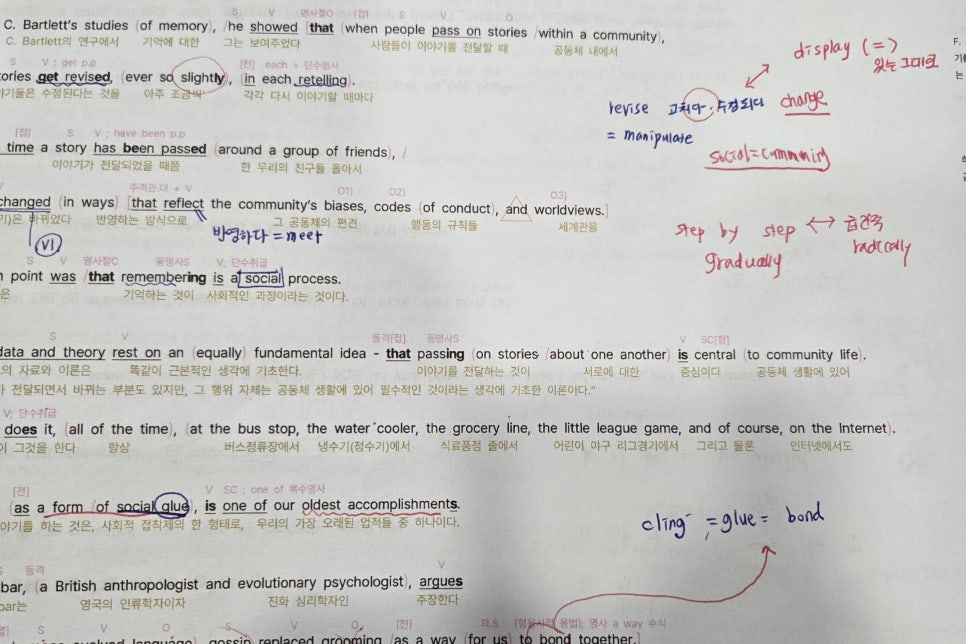 S V 명사절O [접] S V O
C. Bartlett's studies (of memory), /he showed [that (when people pass on stories /within a community),
C. Bartlett의 연구에서 기억에 대한 그는 보여주었다 사람들이 이야기를 전달할 때 공동체 내에서
S V ; get p.p [전] each + 단수명사
ories get revised, (ever so slightly), (in each retelling).
야기들은 수정된다는 것을 아주 조금씩 각각 다시 이야기할 때마다
display (=)
있는 그대로
revise 고치다, 수정되다 change
= manipulate
social = community
[접] S V ; have been p.p
time a story has been passed (around a group of friends), /
이야기가 전달되었을 때쯤 한 무리의 친구들 돌아서
주격관.대 + V O1) O2) O3)
changed (in ways) [that reflect the community's biases, codes (of conduct), and worldviews.]
기)은 바뀌었다 반영하는 방식으로 그 공동체의 편견 행동의 규칙들 세계관을
VI 반영하다 = meer
step by step ↔ 급진적
gradually radically
S V 명사절C 동명사S V; 단수취급
n point was /that remembering is a social process.
은 기억하는 것이 사회적인 과정이라는 것이다.
S V 동격[접] 동명사S V SC[형]
data and theory rest on an (equally) fundamental idea - that passing (on stories /about one another) is central (to community life).
의 자료와 이론은 똑같이 근본적인 생각에 기초한다. 이야기를 전달하는 것이 서로에 대한 중심이다 공동체 생활에 있어
가 전달되면서 바뀌는 부분도 있지만, 그 행위 자체는 공동체 생활에 있어 필수적인 것이라는 생각에 기초한 이론이다."
V; 단수취급
does it, (all of the time), (at the bus stop, the water cooler, the grocery line, the little league game, and of course, on the Internet).
이 그것을 한다 항상 버스정류장에서 냉수기(정수기)에서 식료품점 줄에서 어린이 야구 리그경기에서 그리고 물론 인터넷에서도
[전] V SC ; one of 복수명사
(as a form /of social glue), is one of our oldest accomplishments.
야기를 하는 것은, 사회적 접착제의 한 형태로, 우리의 가장 오래된 업적들 중 하나이다.
cling = glue = bond
S 동격 V
bar, (a British anthropologist and evolutionary psychologist), argues
bar는 영국의 인류학자이자 진화 심리학자인 주장한다
S V O S V O [전] 의.S [형용사적 용법]; 명사 a way 수식
evolved language) gossip replaced grooming (as a way (for us) to bond together.]
F.
기
는